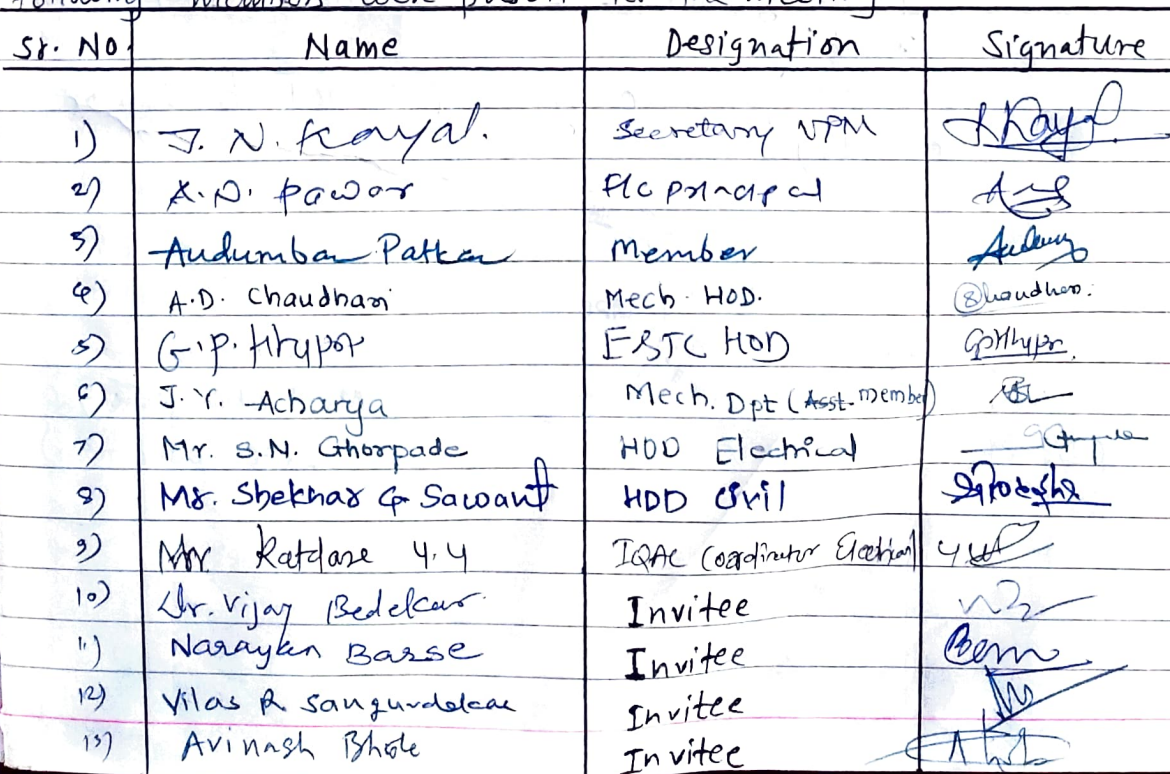 following members were present for the meeting
Sr. No. Name Designation Signature
1) J. N. Kayal. Secretary VPM
2) A. N. Pawar I/c principal
3) Audumbar Patkar Member
4) A.D. Chaudhari Mech. HOD.
5) G.P. HOD
6) J. Y. Acharya Mech. Dpt (Asst. member)
7) Mr. S.N. Ghorpade HOD Electrical
8) Mr. Shekhar G Sawant HOD Civil
9) Mr Katdare Y.Y IQAC Coordinator Electrical
10) Dr. Vijay Bedekar Invitee
11) Narayan Barse Invitee
12) Vilas R Sangurdekar Invitee
13) Avinash Bhole Invitee